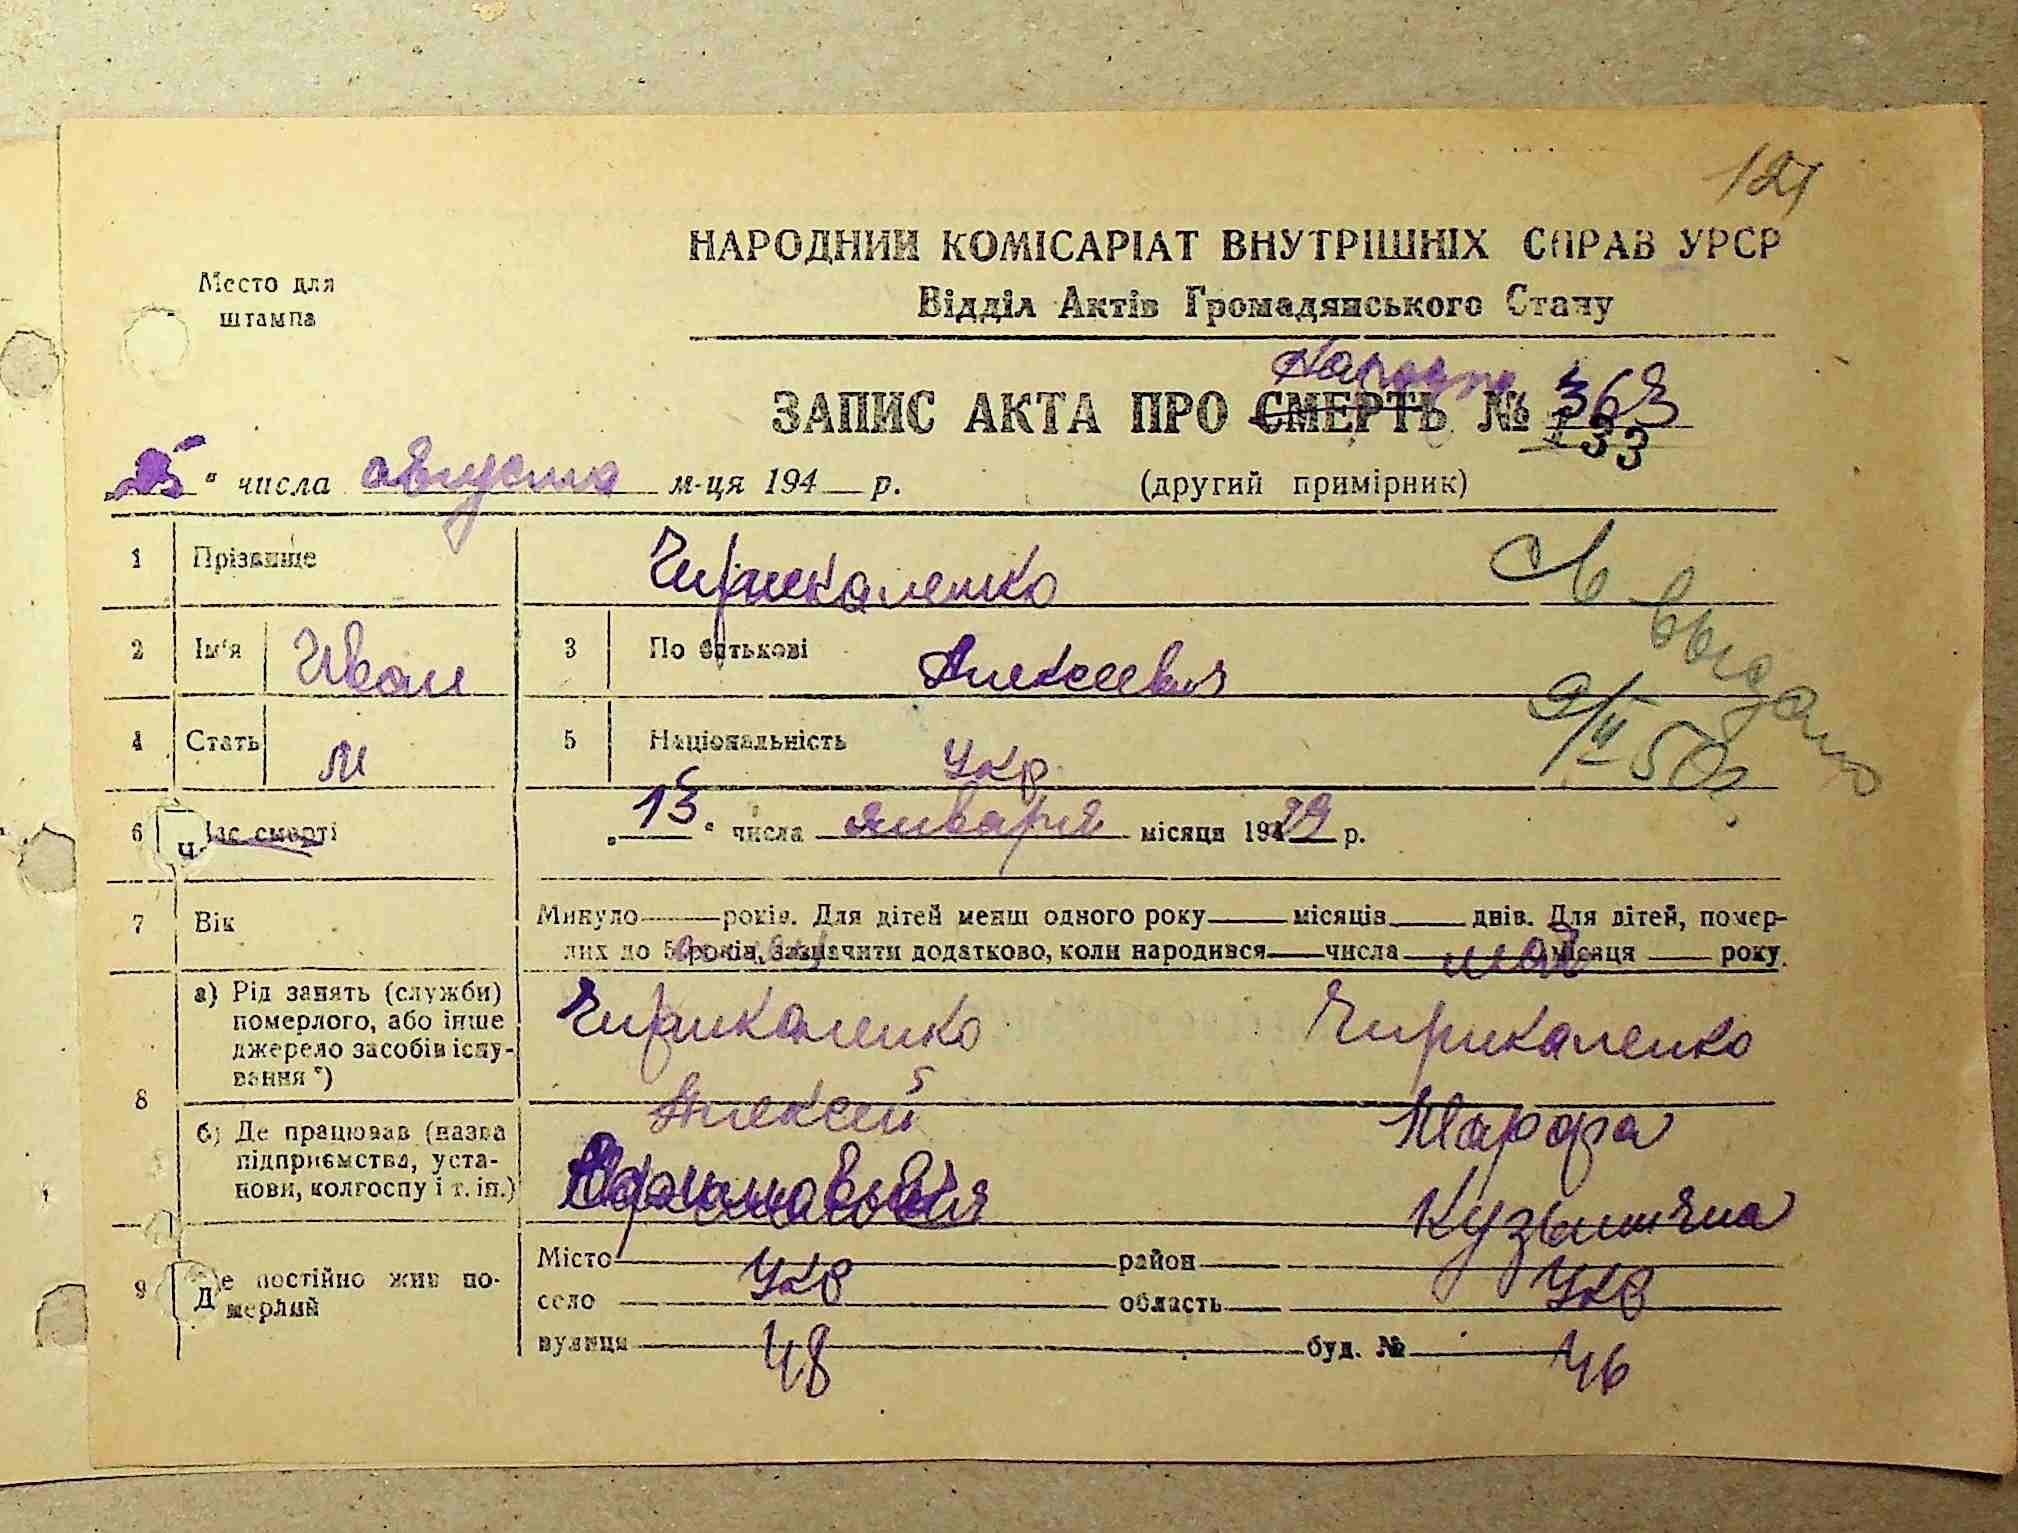 121
НАРОДНИЙ КОМІСАРІАТ ВНУТРІШНІХ СПРАВ УРСР
Место для штампа
Відділ Актів Громадянського Стану
ЗАПИС АКТА ПРО СМЕРТЬ № 363
133
" числа августа м-ця 194 р. (другий примірник)
1 Прізвище Чирикаленко
См выдано
2 Ім'я Иван 3 По батькові Алексеевич
9/II 50г.
4 Стать м 5 Національність Укр
6 Час смерті „13" числа января місяця 1929 р.
7 Вік Минуло років. Для дітей менш одного року місяців днів. Для дітей, помер-
лих до 5 років, зазначити додатково, коли народився числа місяця року
8 а) Рід занять (служби) померлого, або інше джерело засобів існу-вання *)
Чирикаленко Чирикаленко
Алексей Марфа
б) Де працював (назва підприємства, уста-нови, колгоспу і т. ін.)
Кузьминична
9 Де постійно жив по-мерлий
Місто район
Укр Укр
село область
вулиця 48 буд. № 46